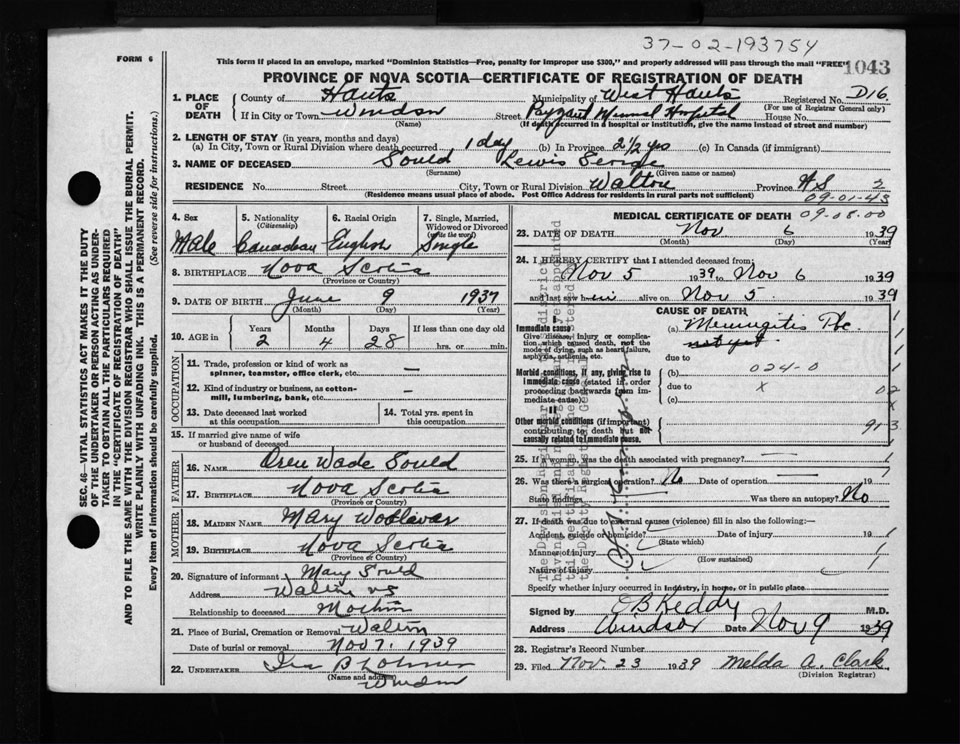 37-02-193754
FORM 6
This form if placed in an envelope, marked "Dominion Statistics—Free, penalty for improper use $300," and properly addressed will pass through the mail "FREE"
1043
PROVINCE OF NOVA SCOTIA—CERTIFICATE OF REGISTRATION OF DEATH
1. PLACE OF DEATH
County of Hants Municipality of West Hants Registered No. D16
(For use of Registrar General only)
If in City or Town Windsor Street Payzant Memorial Hospital House No.
(Name) (If death occurred in a hospital or institution, give the name instead of street and number)
2. LENGTH OF STAY (in years, months and days)
(a) In City, Town or Rural Division where death occurred 1 day (b) In Province 2 1/2 yrs (c) In Canada (if immigrant)
3. NAME OF DECEASED Sould Lewis George
(Surname) (Given name or names)
RESIDENCE No. Street City, Town or Rural Division Walton Province NS 2
(Residence means usual place of abode. Post Office Address for residents in rural parts not sufficient) 09-01-43
4. Sex 5. Nationality (Citizenship) 6. Racial Origin 7. Single, Married, Widowed or Divorced (write the word)
Male Canadian English Single
8. BIRTHPLACE Nova Scotia
(Province or Country)
9. DATE OF BIRTH June 9 1937
(Month) (Day) (Year)
10. AGE in Years Months Days If less than one day old
2 4 28 hrs. or min.
OCCUPATION
11. Trade, profession or kind of work as spinner, teamster, office clerk, etc. —
12. Kind of industry or business, as cotton-mill, lumbering, bank, etc. —
13. Date deceased last worked at this occupation
14. Total yrs. spent in this occupation
15. If married give name of wife or husband of deceased
FATHER
16. NAME Oren Wade Sould
17. BIRTHPLACE Nova Scotia
(Province or Country)
MOTHER
18. MAIDEN NAME Mary
19. BIRTHPLACE Nova Scotia
(Province or Country)
20. Signature of informant Mary Sould
Address Walton NS
Relationship to deceased Mother
21. Place of Burial, Cremation or Removal Walton
Date of burial or removal Nov 7, 1939
22. UNDERTAKER Ira B
(Name and address) Windsor
MEDICAL CERTIFICATE OF DEATH 09-08.00
23. DATE OF DEATH Nov 6 1939
(Month) (Day) (Year)
24. I HEREBY CERTIFY that I attended deceased from
Nov 5 1939 to Nov 6 1939
and last saw him alive on Nov 5 1939
CAUSE OF DEATH
Immediate cause— (a) Meningitis Tbc 1
Give disease, injury or complication which caused death, not the mode of dying, such as heart failure, asphyxia, asthenia, etc.
due to
Morbid conditions, if any, giving rise to immediate cause (stated in order proceeding backwards from immediate cause).
(b) 024-0 1
due to X 02
(c) X
Other morbid conditions (if important) contributing to death but not causally related to immediate cause.
913
25. If a woman, was the death associated with pregnancy? — 1
26. Was there a surgical operation? No Date of operation — 1
State findings Was there an autopsy? No
27. If death was due to external causes (violence) fill in also the following:—
Accident, suicide or homicide? Date of injury 19
(State which)
Manner of injury
(How sustained)
Nature of injury
Specify whether injury occurred in industry, in home, or in public place
Signed by O B Keddy M.D.
Address Windsor Date Nov 9 1939
28. Registrar's Record Number
29. Filed Nov. 23 1939 Melda A. Clark
(Division Registrar)
SEC. 46—VITAL STATISTICS ACT MAKES IT THE DUTY
OF THE UNDERTAKER OR PERSON ACTING AS UNDER-
TAKER TO OBTAIN ALL THE PARTICULARS REQUIRED
IN THE "CERTIFICATE OF REGISTRATION OF DEATH"
AND TO FILE THE SAME WITH THE DIVISION REGISTRAR WHO SHALL ISSUE THE BURIAL PERMIT.
WRITE PLAINLY WITH UNFADING INK. THIS IS A PERMANENT RECORD.
Every item of information should be carefully supplied. (See reverse side for instructions.)